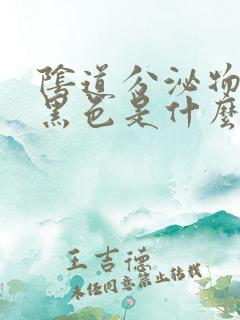 陰道分泌物
黑色是什麼
王吉德
未经同意禁止转载